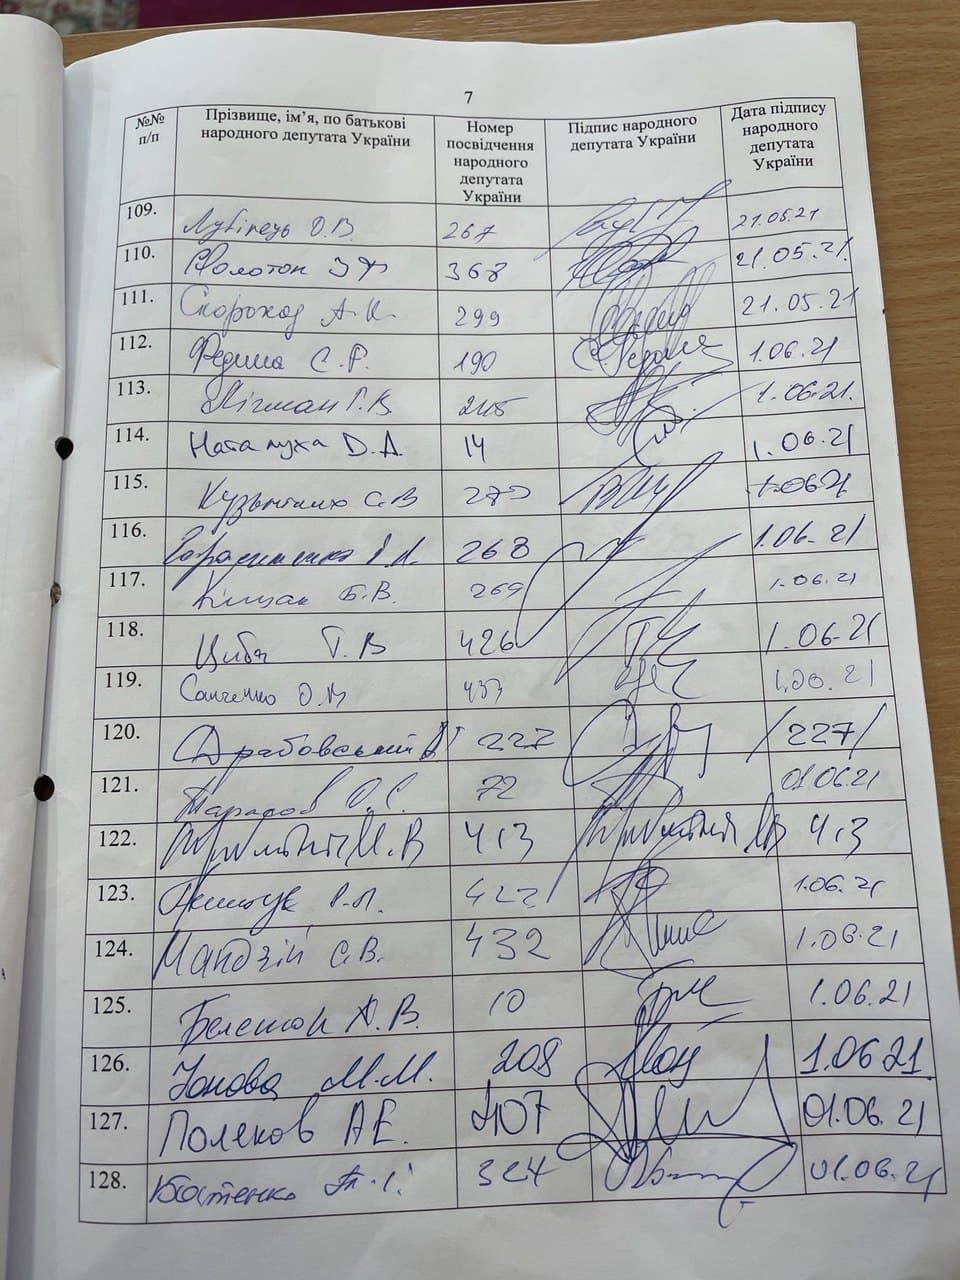 7
№№ п/п Прізвище, ім'я, по батькові народного депутата України Номер посвідчення народного депутата України Підпис народного депутата України Дата підпису народного депутата України
109. Лубінець О.В. 267 21.05.21
110. Холоток З 368 21.05.21
111. Скороход А.К. 299 21.05.21
112. Федина С.Р. 190 1.06.21
113. Лігман Г.В 1.06.21.
114. Наталуха Д.А 14 1.06.21
115. С.В 1.06.21
116. 268 1.06.21
117. Кицак Б.В. 269 1.06.21
118. Циба Т.В 426 1.06.21
119. Санченко О.В 433
120. Драбовський 227 /227/
121. Тарасов О.С. 72 01.06.21
122. 413 413
123. 422 1.06.21
124. Мандзій С.В. 432 1.06.21
125. А.В. 10 1.06.21
126. Іонова М.М. 208 1.06.21
127. Поляков А.Е. 407 01.06.21
128. Батенко Т.І. 324 01.06.21